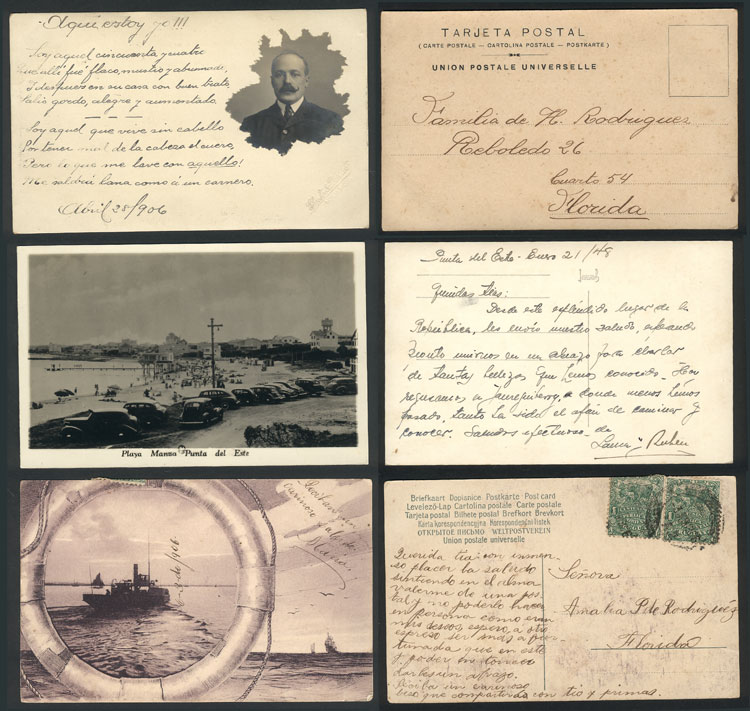 Aqui estoy yo!!!
Soy aquel cincuenta y cuatro
que alli fué flaco, mustro y aburrido,
I despues en su casa con buen trato,
Salió gordo, alegre y aumentado.
Soy aquel que vive sin cabello
Por tener mal de la cabeza el cuero,
Pero lo que me lave con aquello!
Me saldrá lana como á un carnero.
Abril 28/906
TARJETA POSTAL
(CARTE POSTALE — CARTOLINA POSTALE — POSTKARTE)
UNION POSTALE UNIVERSELLE
Familia de H. Rodriguez
Reboledo 26
Cuarto 54
Florida
Playa Mansa Punta del Este
Punta del Este - Enero 21/48
Queridos tios:
Desde este espléndido lugar de la
República, les envío nuestro saludo, esperando
pronto unirnos en un abrazo para charlar
de tantas bellezas que hemos conocido.
regresamos a a donde menos hemos
pasado, tanto la vida el afán de caminar y
conocer. Saludos afectuosos de
y Ruben
de 1906
Briefkaart Dopisnice Postkarte Post card
Levelező-Lap Cartolina postale Carte postale
Tarjeta postal Bilhete postal Brefkort Brevkort
Karta korespondencyjna Korespondenční lístek
ОТКРЫТОЕ ПИСЬМО WELTPOSTVEREIN
Union postale universelle
Querida tia: con inmen
so placer la saludo
sintiendo en el alma
valerme de una pos
tal y no poderlo hacer
en persona como eran
mis deseos, espero, a otro
espreso ser mas afor
tunada que en este
y poder en
darles un abrazo.
Reciba un cariñoso
beso que compartirá con tio y primas.
Señora
Amalia P. de Rodriguez
Florida